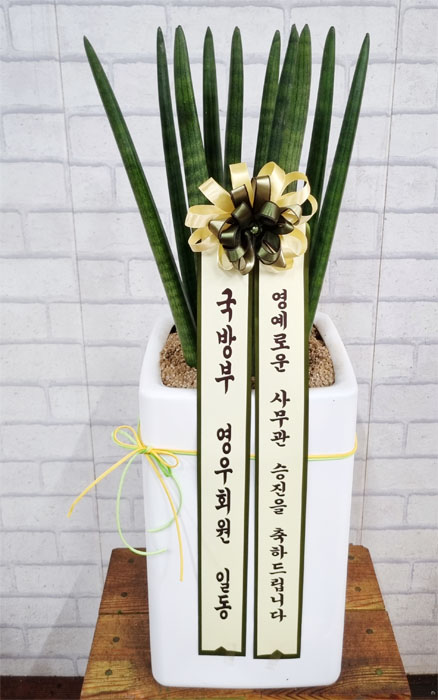 영예로운 사무관 승진을 축하드립니다
국방부 영우회원 일동